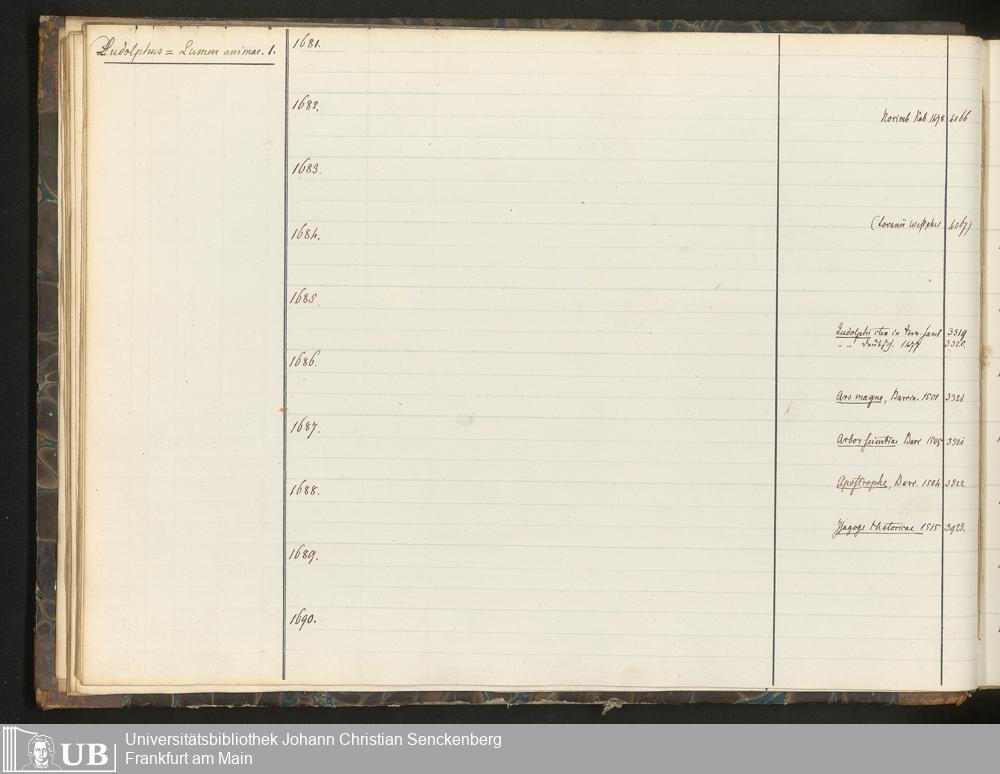 Ludolphus = Lumen animae. 1.
1681.
1682.
Norimb. Kob. 1478 4066
1683.
1684.
(Lovanii 4067)
1685.
Ludolphi iter in terr. sanct 3319
" " Deutsch. 1477 3320.
1686.
Ars magna, Barcin. 1501 3321
1687.
Arbor scientiae Barc 1505 3321
1688.
Apostrophe, Barc. 1504 3322
Isagoge Rhetoricae 1515 3923.
1689.
1690.
UB
Universitätsbibliothek Johann Christian Senckenberg
Frankfurt am Main